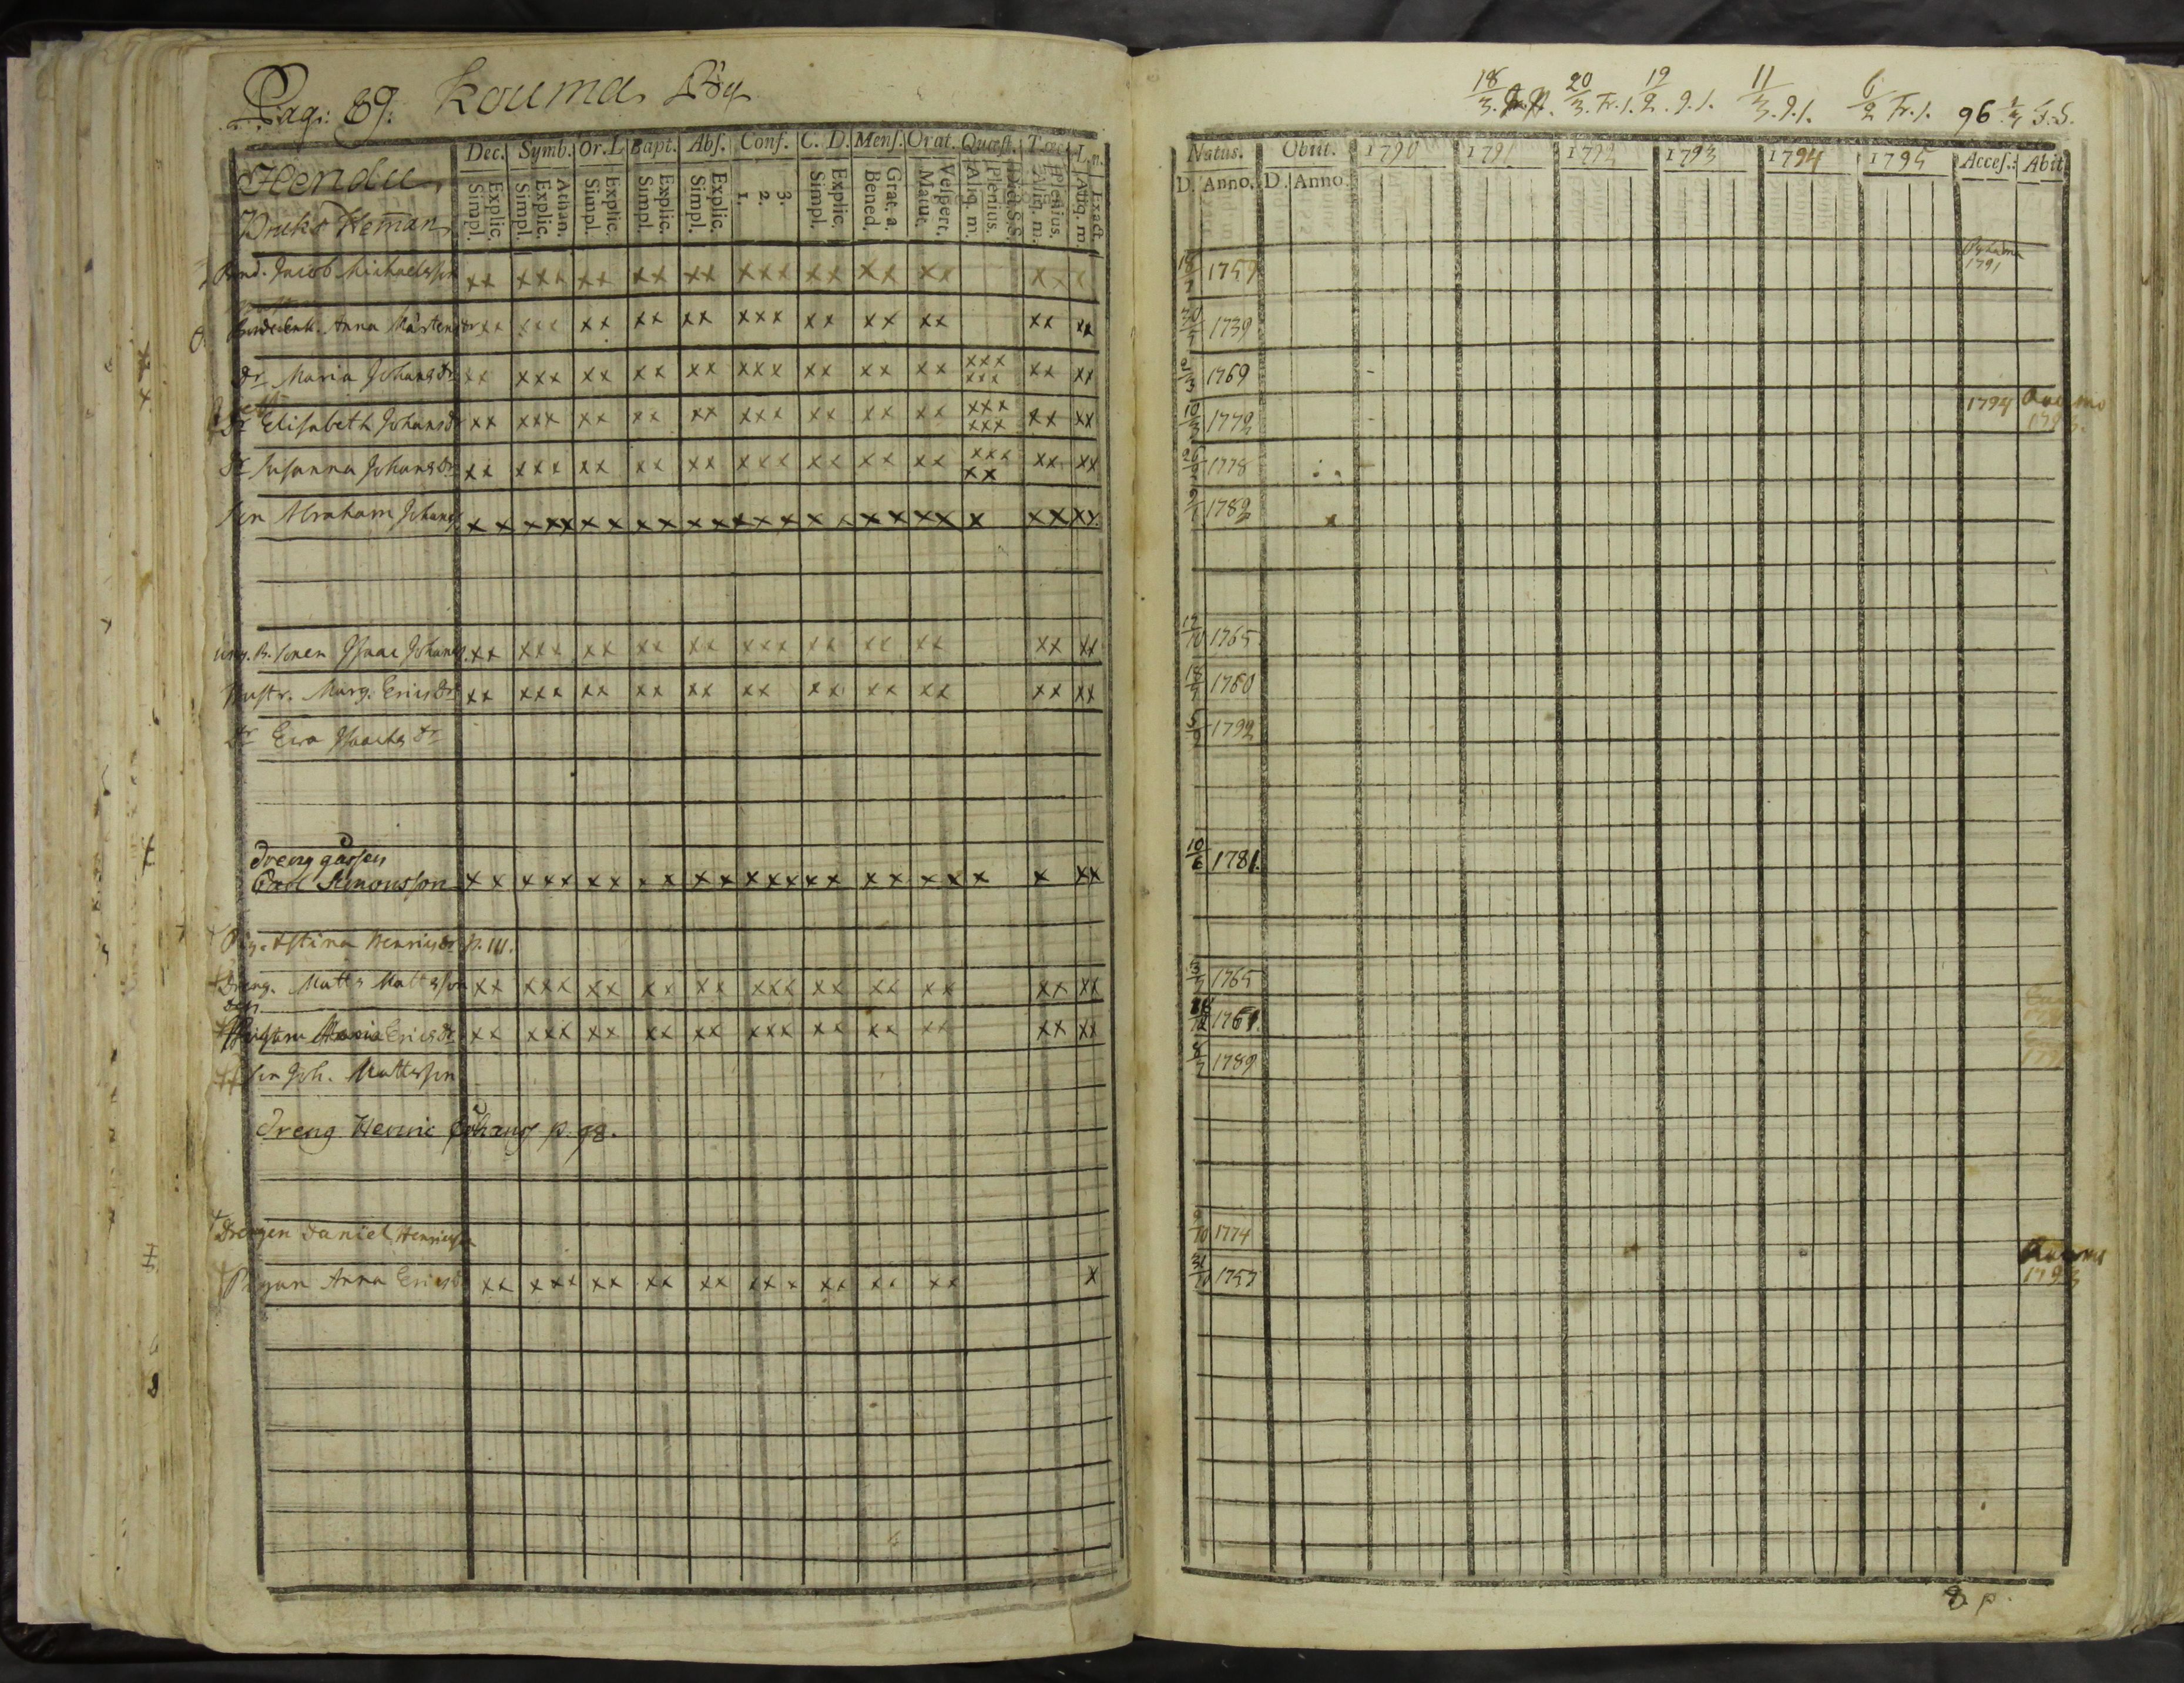 Pag: 89. Kouma By
18/3. 20/3. Fr. 1. 19/2. J. 1. 11/3. J. 1. 6/2 Fr. 1. 96 1/3 J. S.
Dec. Symb. Or. L Bapt. Abs. Conf. C. D. Mens. Orat. Quæst. T. œc L. n.
Explic. Simpl. Athan. Explic. Simpl. Explic. Simpl. Explic. Simpl. Explic. Simpl. 3. 2. 1. Explic. Simpl. Grat. a. Bened. Vespert. Matut. Dict. S.S. Plenius. Aliq. m. Plenius. Aliq. m. Exact. Aliq. m.
Natus. Obiit. 1790 1791 1792 1793 1794 1795 Acces.: Abit
D. Anno. D. Anno.
Hendu
Heman
Bond. Jacob Michaelsson xx xxx xx xx xx xxx xx xx xx 1757 1791
Anna Mårtensdr xx xxx xx xx xx xxx xx xx xx xx xx 30 1739
dr Maria Johansdr xx xxx xx xx xx xxx xx xx xx xxx xxx xx xx 2/3 1769
dr Elisabeth Johansdr xx xxx xx xx xx xxx xx xx xx xxx xxx xx xx 10/3 1772 1794
dr Susanna Johansdr xx xxx xx xx xx xxx xx xx xx xxx xx xx xx 1778
Son Abraham Johans xx xxxx xx xx xx xxx xx xx xx x xx xx 1782
B. sonen Isaac Johans. xx xxx xx xx xx xxx xx xx xx xx xx 17/10 1765
Hustr. Marg. Ericsdr xx xxx xx xx xx xx xx xx xx xx xx 18 1760
dr Eva Isaacksdr 5/2 1792
Drenggåssen
Carl Simonsson xx xxx xx xx xx xxx xx xx xx x x xx 10/6 1781.
Pig. Stina Henricsdr p. 111.
Dreng. Matts Mattsson xx xxx xx xx xx xxx xx xx xx xx xx 1765
Maria Ericsdr xx xxx xx xx xx xxx xx xx xx xx xx 1761.
Son Joh. Mattsson 1789
Dreng Henric Johans p. 98.
Drengen Daniel Henricsson 9/10 1774
Pigan Anna Ericsdr xx xxx xx xx xx xxx xx xx xx x 31/10 1757 1793
8. p.